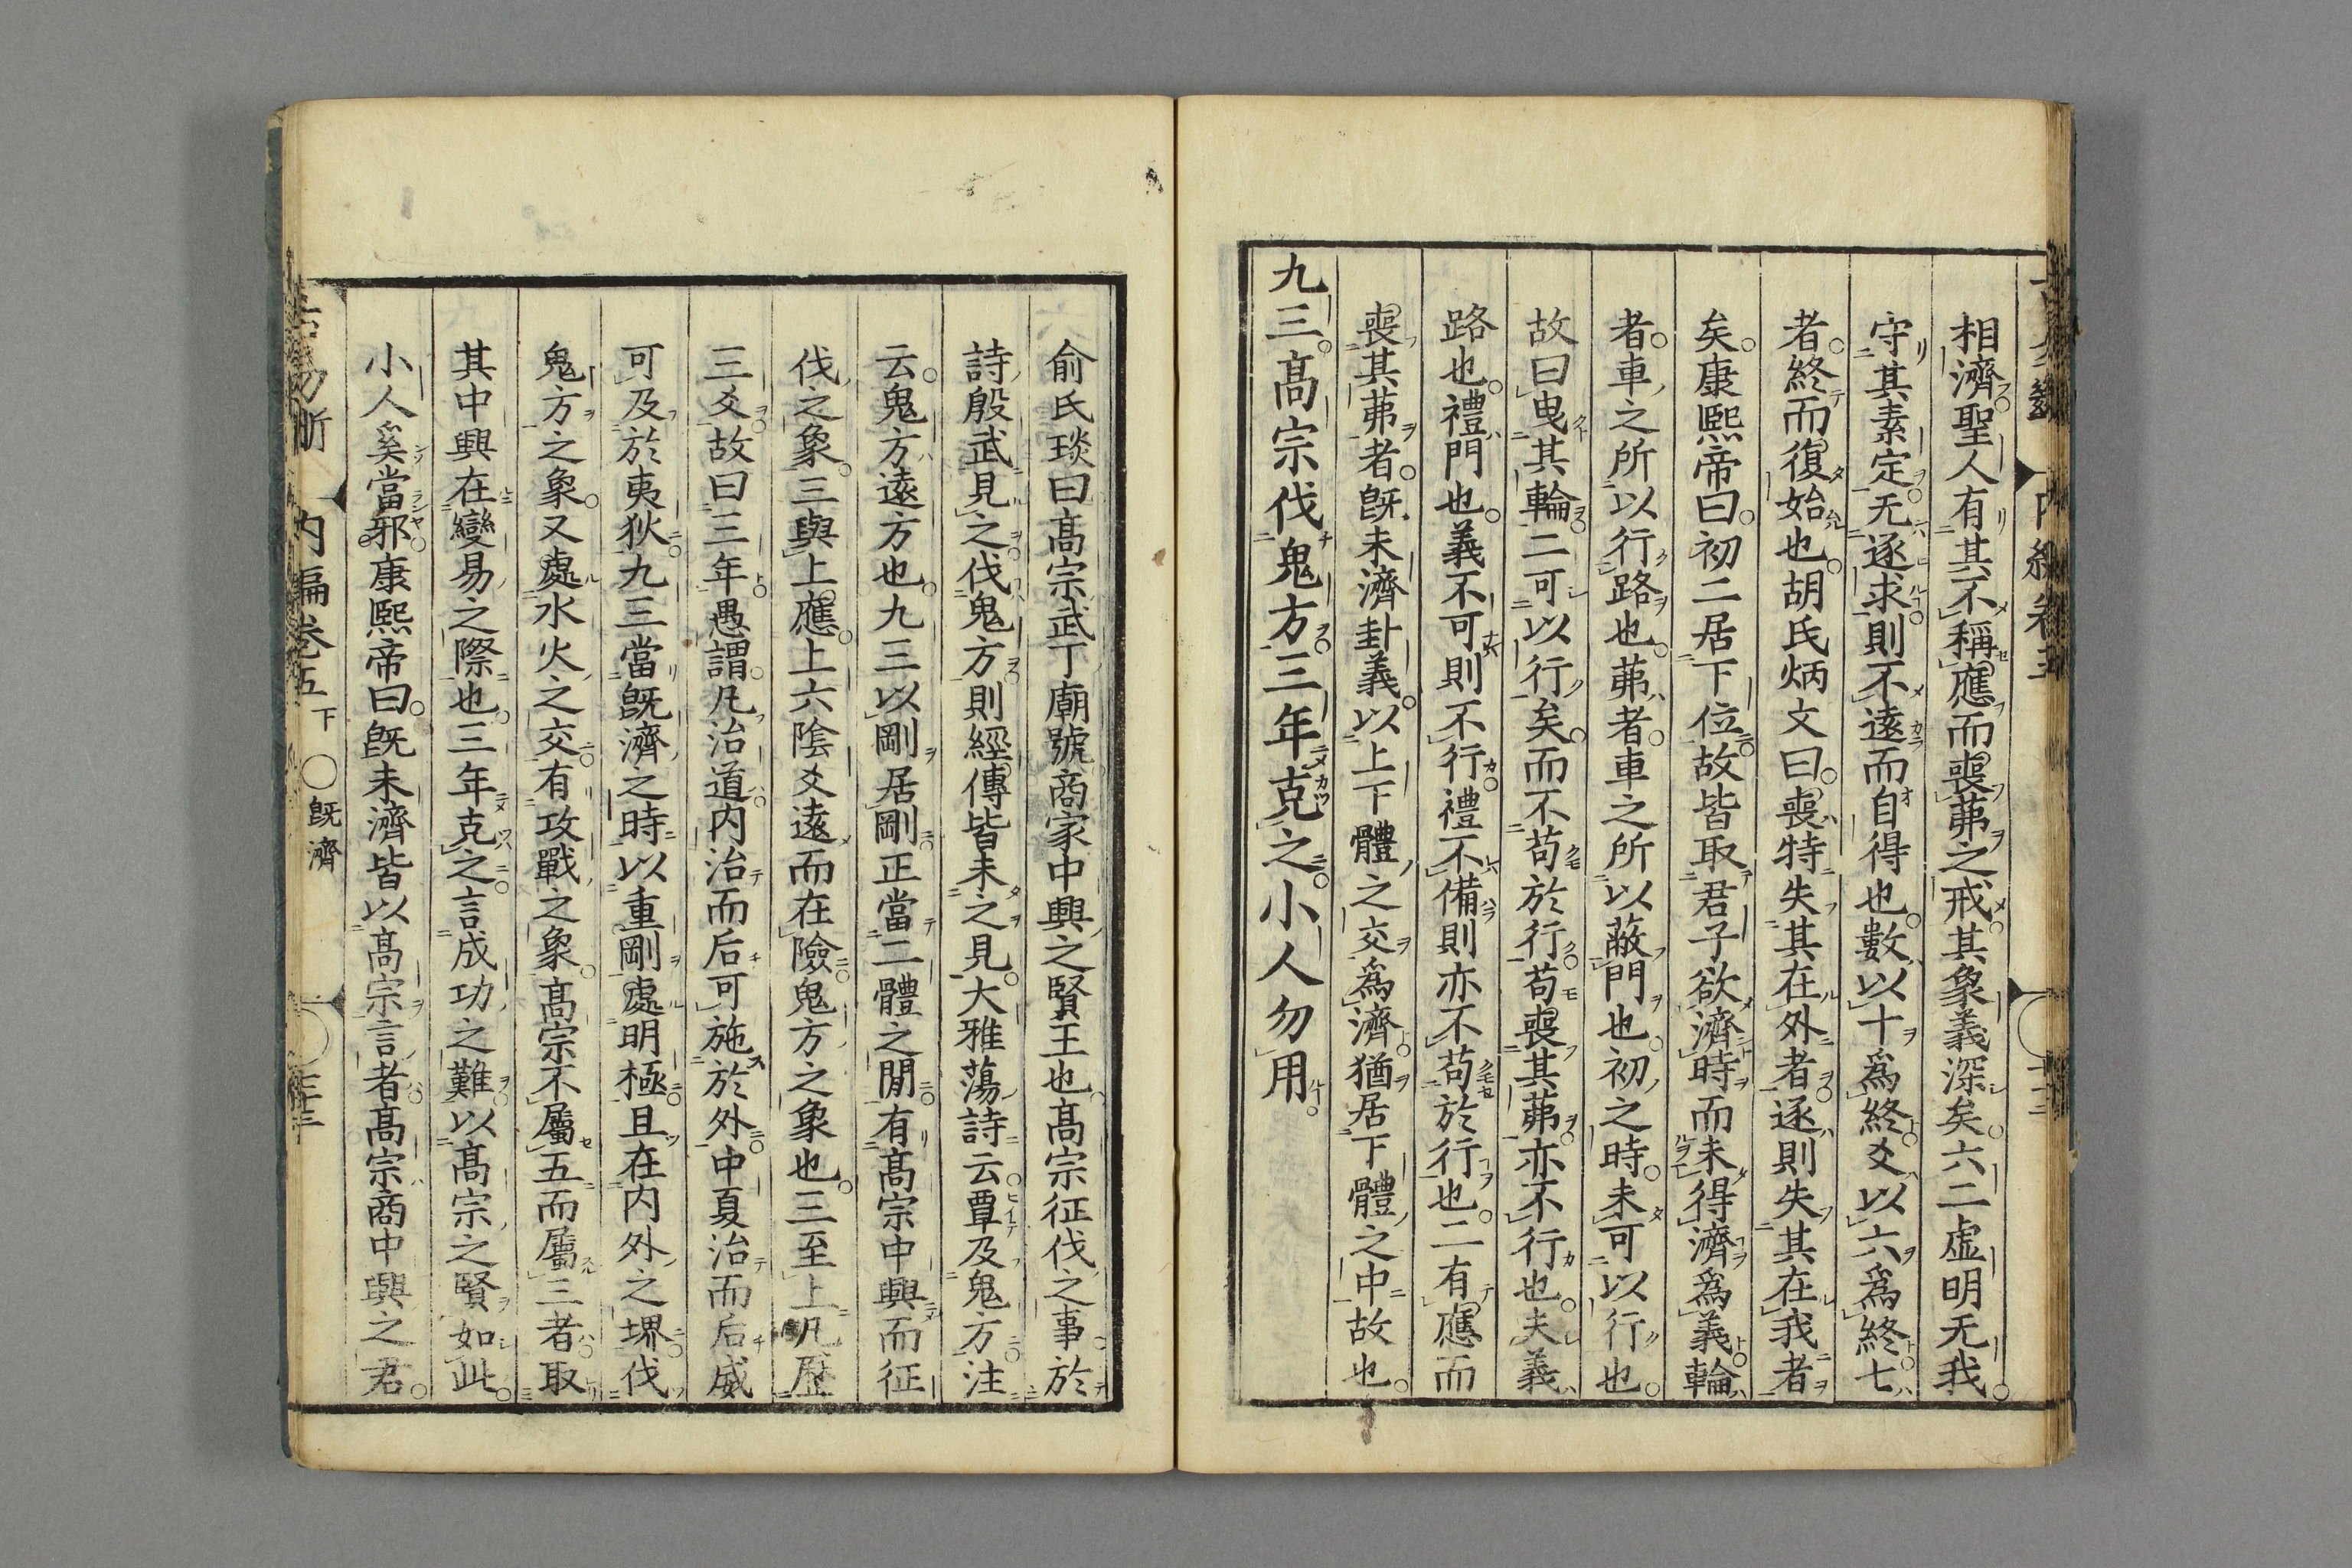 相濟聖人有其不稱應而喪茀之戒其象義深矣六二虛明无我
守其素定无逐求則不遠而自得也數以十爲終爻以六爲終七
者終而復始也胡氏炳文曰喪特失其在外者逐則失其在我者
矣康熙帝曰初二居下位故皆取君子欲濟時而未得濟爲義輪
者車之所以行路也茀者車之所以蔽門也初之時未可以行也
故曰曳其輪二可以行矣而不苟於行苟喪其茀亦不行也夫義
路也禮門也義不可則不行禮不備則亦不苟於行也二有應而
喪其茀者既未濟卦義以上下體之交爲濟猶居下體之中故也
九三高宗伐鬼方三年克之小人勿用
俞氏琰曰高宗武丁廟號商家中興之賢王也高宗征伐之事於
詩殷武見之伐鬼方則經傳皆未之見大雅蕩詩云覃及鬼方注
云鬼方遠方也九三以剛居剛正當二體之間有高宗中興而征
伐之象三與上應上六陰爻遠而在險鬼方之象也三至上凡歷
三爻故曰三年愚謂凡治道内治而后可施於外中夏治而后威
可及於夷狄九三當既濟之時以重剛處明極且在内外之堺伐
鬼方之象又處水火之交有攻戰之象高宗不屬五而屬三者取
其中興在變易之際也三年克之言成功之難以高宗之賢如此
小人奚當邪康熙帝曰既未濟皆以高宗言者高宗商中興之君
内編卷五下 〇既濟